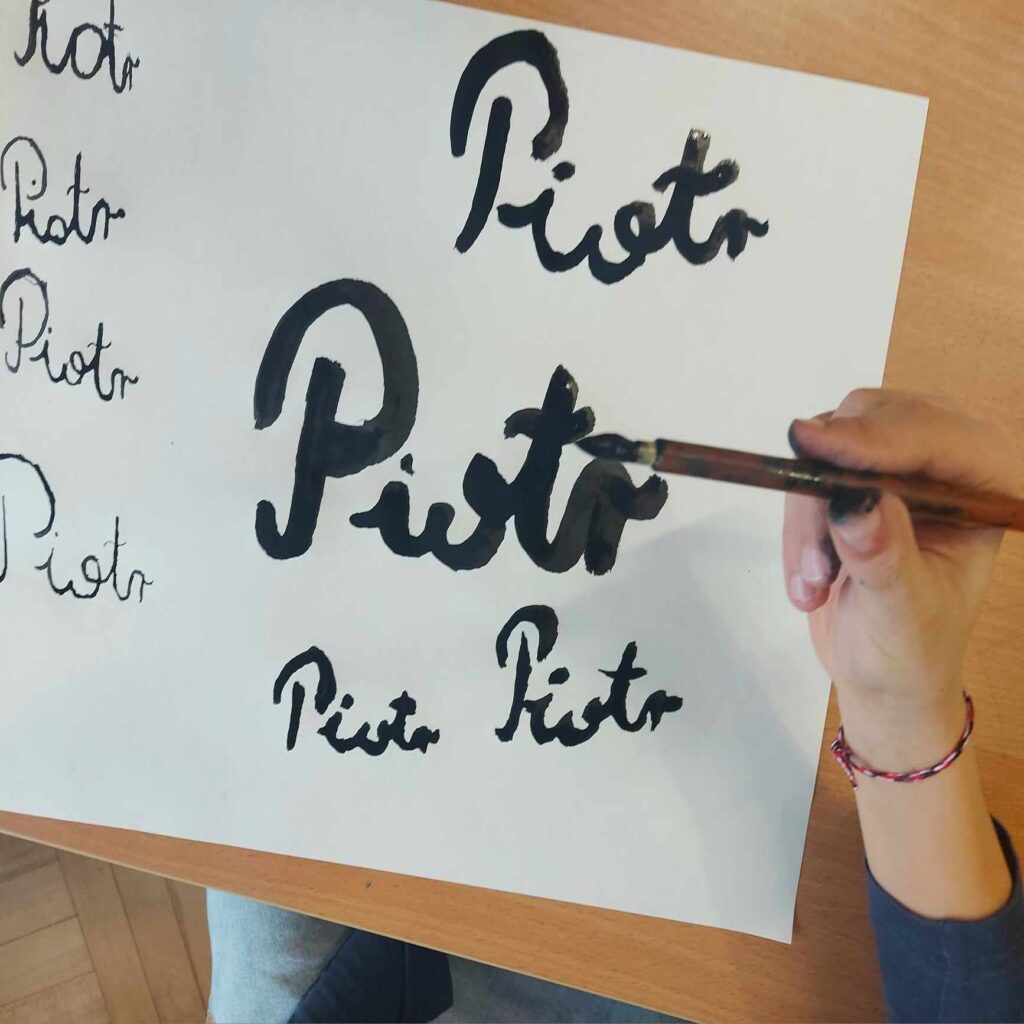 Piotr
Piotr
Piotr
Piotr
Piotr
Piotr
Piotr Piotr